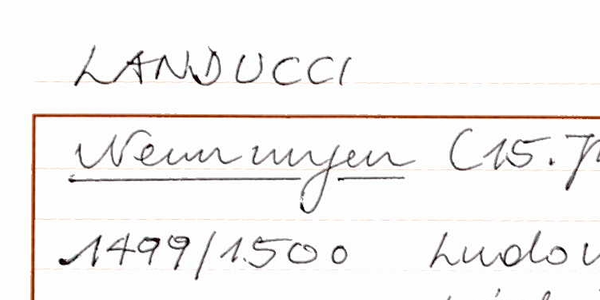 LANDUCCI
Nennungen (15. J
1499/1500 Ludov